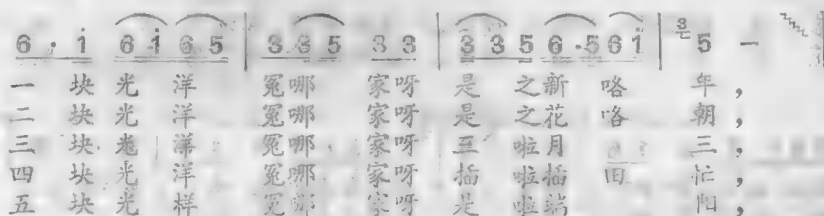 6 · i 6 i 6 5 | 3 3 5 3 3 | 3 3 5 6 · 5 6 i | 3 5 —
一 块 光 洋 冤 哪 家 呀 是 之 新 咯 年 ，
二 块 光 洋 冤 哪 家 呀 是 之 花 咯 朝 ，
三 块 光 洋 冤 哪 家 呀 三 啦 月 三 ，
四 块 光 洋 冤 哪 家 呀 插 啦 插 田 忙 ，
五 块 光 样 冤 哪 家 呀 是 端 阳 ，